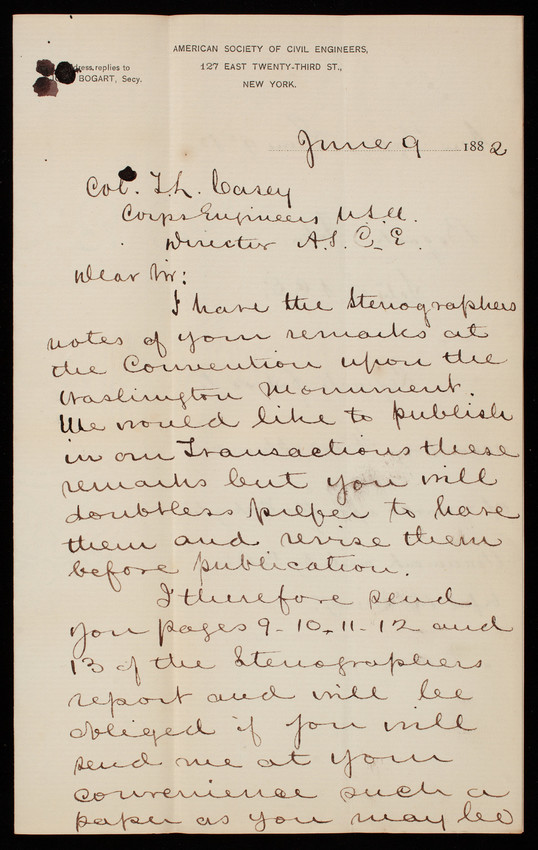 AMERICAN SOCIETY OF CIVIL ENGINEERS,
127 EAST TWENTY-THIRD ST.,
NEW YORK.
dress, replies to
BOGART, Secy.
June 9 1882
Col. T. L. Casey
Corps Engineers U.S.A.
Director A. S. C. E.
Dear Sir:
I have the Stenographers
notes of your remarks at
the Convention upon the
Washington Monument.
We would like to publish
in our Transactions these
remarks but you will
doubtless prefer to have
them and revise them
before publication.
I therefore send
you pages 9-10-11-12 and
13 of the Stenographers
report and will be
obliged if you will
send me at your
convenience such a
paper as you may be